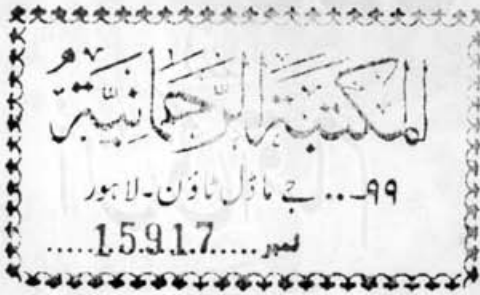 المكتبة الرحمانية
۹۹۔... جے ماڈل ٹاؤن۔ لاہور
نمبر.....15917.....